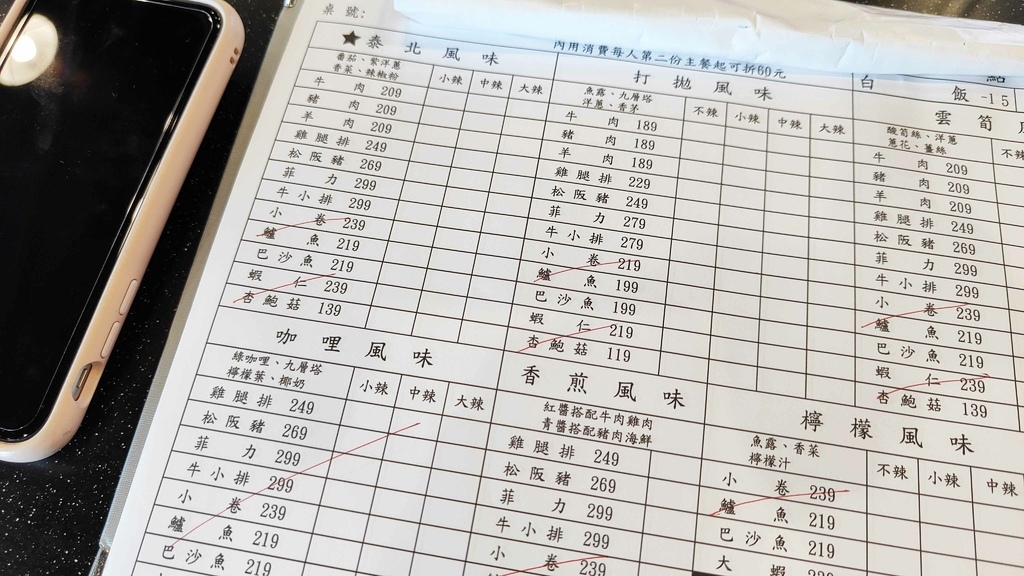 桌號:
內用消費每人第二份主餐起可折60元
★泰北風味
番茄、紫洋蔥
香菜、辣椒粉
小辣 中辣 大辣
牛肉 209
豬肉 209
羊肉 209
雞腿排 249
松阪豬 269
菲力 299
牛小排 299
小卷 239
鱸魚 219
巴沙魚 219
蝦仁 239
杏鮑菇 139
打拋風味
魚露、九層塔
洋蔥、香茅
不辣 小辣 中辣 大辣
牛肉 189
豬肉 189
羊肉 189
雞腿排 229
松阪豬 249
菲力 279
牛小排 279
小卷 219
鱸魚 199
巴沙魚 199
蝦仁 219
杏鮑菇 119
點
白飯 -15
雲筍
酸筍絲、洋蔥
蔥花、薑絲
不
牛肉 209
豬肉 209
羊肉 209
雞腿排 249
松阪豬 269
菲力 299
牛小排 299
小卷 239
鱸魚 219
巴沙魚 219
蝦仁 239
杏鮑菇 139
咖哩風味
綠咖哩、九層塔
檸檬葉、椰奶
小辣 中辣 大辣
雞腿排 249
松阪豬 269
菲力 299
牛小排 299
小卷 239
鱸魚 219
巴沙魚 219
香煎風味
紅醬搭配牛肉雞肉
青醬搭配豬肉海鮮
雞腿排 249
松阪豬 269
菲力 299
牛小排 299
小卷 239
檸檬風味
魚露、香菜
檸檬汁
不辣 小辣 中辣
小卷 239
鱸魚 219
巴沙魚 219
大蝦